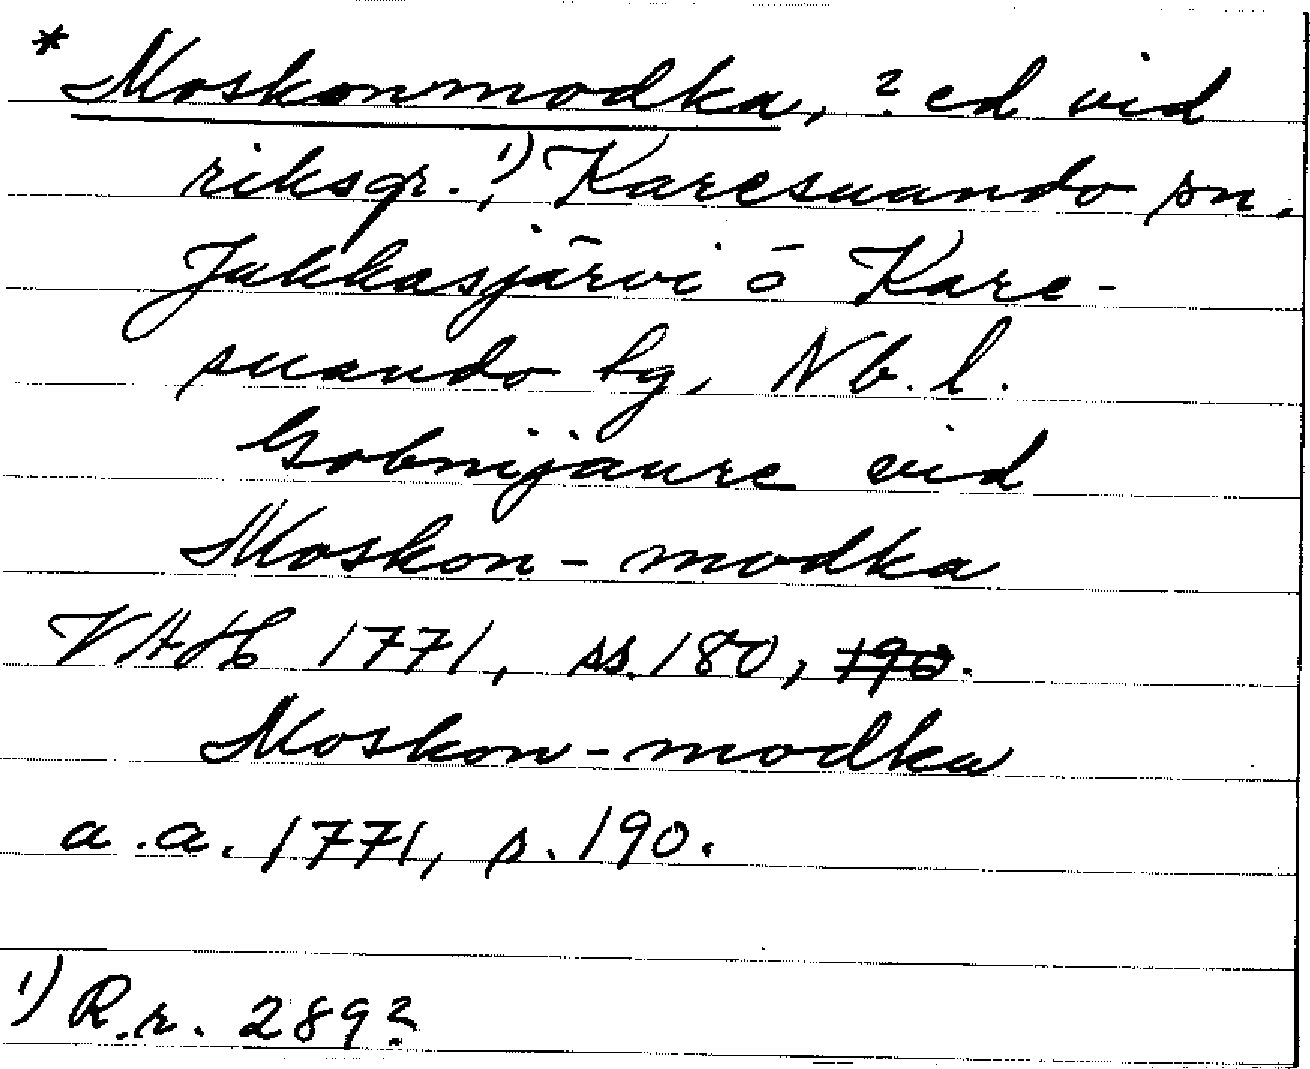 * Moskonmodka, ? ed vid
riksgr.,¹) Karesuando sn.
Jukkasjärvi o Kare-
suando tg, Nb. l.
Gobnijaure vid
Moskon-modka
VAH 1771, ss. 180, 190.
Moskon-modka
a.a. 1771, s. 190.
¹) R.r. 289?